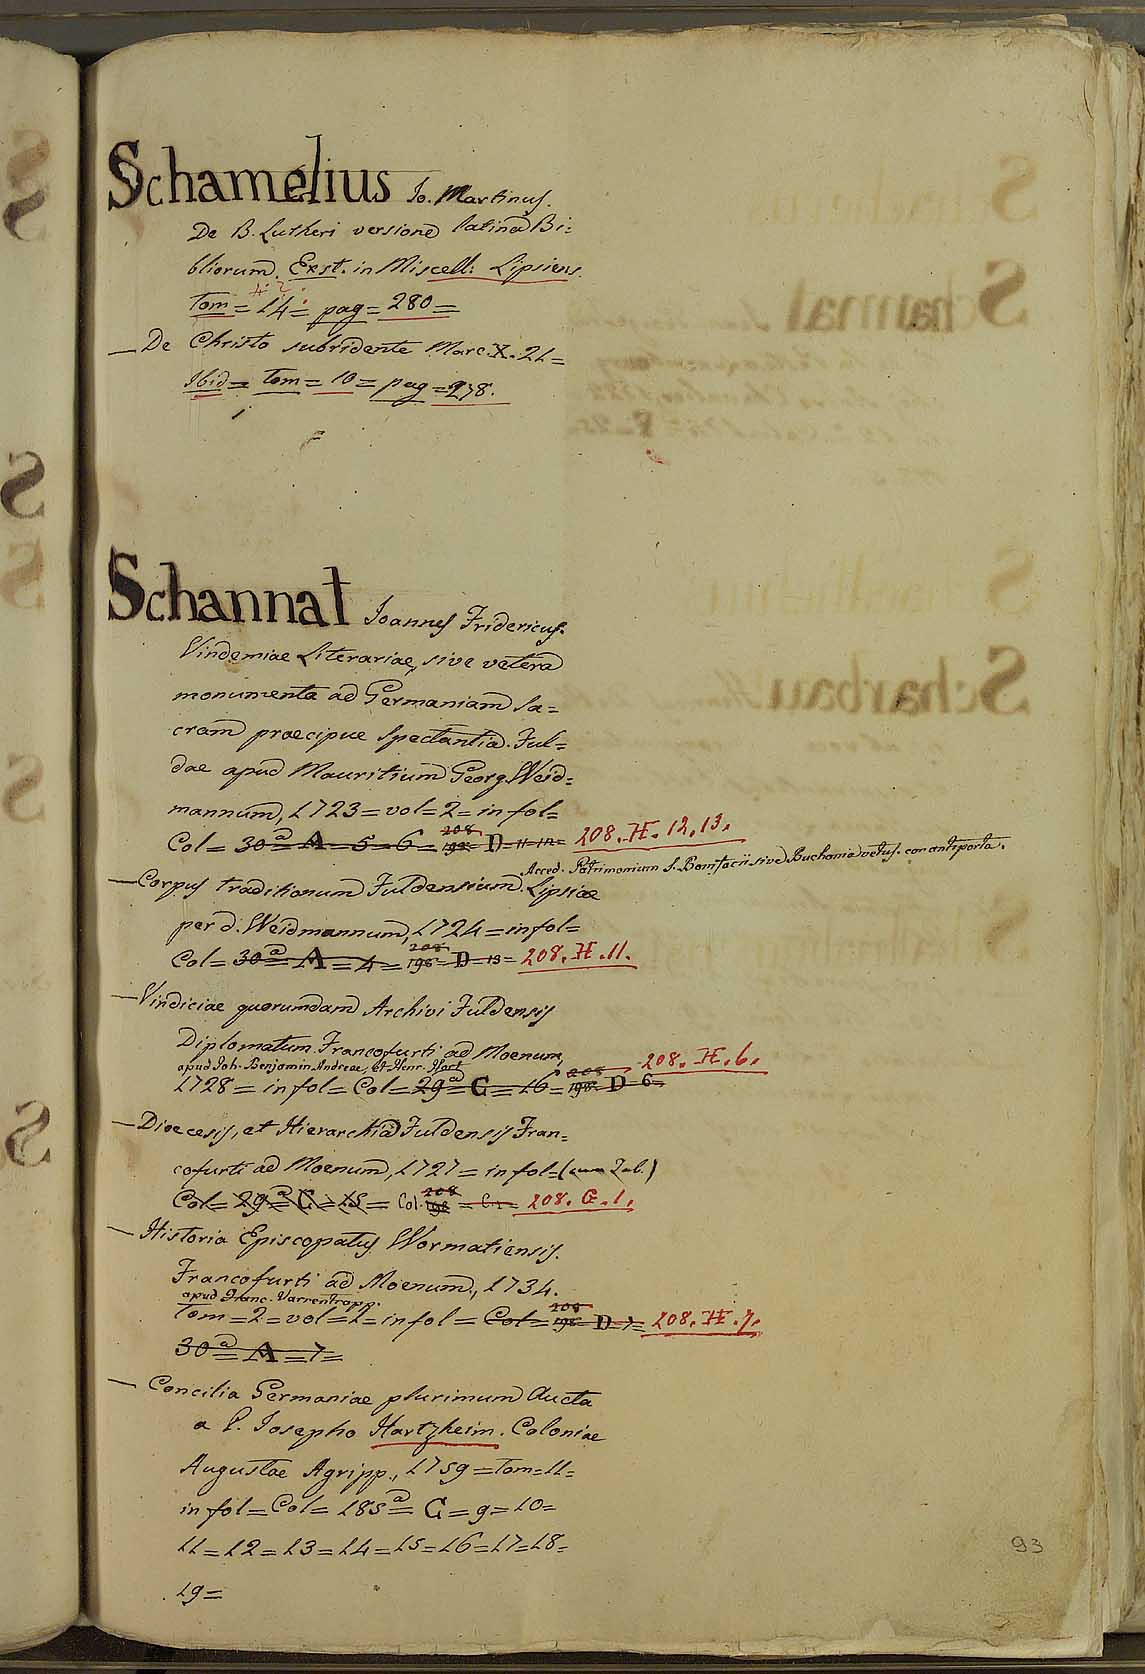 Schamelius Io. Martinus.
De B. Lutheri versione latina Bi=
bliorum. Exst. in Miscell: Lipsiens.
Tom = 14 = pag = 280 =
— De Christo subridente Marc. X. 21 =
Ibid = Tom = 10 = pag = 278.
Schannat Ioannes Fridericus.
Vindemiae Literariae, sive vetera
monumenta ad Germaniam Sa=
cram praecipue Spectantia. Ful=
dae apud Mauritium Georg. Weid=
mannum, 1723 = vol = 2 = in fol =
Col = 30a = A = 5 = 6 = 208 198 D = 11 = 12 = 208. H. 12. 13.
Acced. Patrimonium S. Bonifacii sive Buchonia vetus. con antiporta.
— Corpus traditionum Fuldensium. Lipsiae
per d. Weidmannum, 1724 = in fol =
Col = 30a = A = 4 = 208 198 = D = 13 = 208. H. 11.
— Vindiciae quorumdam Archivi Fuldensis
Diplomatum. Francofurti ad Moenum,
apud Joh. Benjamin Andreae, et Henr. Hort
1728 = in fol = Col = 29a = C = 16 = 208 198 D = 6 = 208. H. 6.
— Dioecesis, et Hierarchia Fuldensis Fran=
cofurti ad Moenum, 1727 = in fol = (cum Tab.)
Col = 29a = C = 15 = Col. 208 198 = C. 1 = 208. G. 1.
— Historia Episcopatus Wormatiensis.
Francofurti ad Moenum, 1734.
apud Franc. Varrentrapp.
Tom = 2 = vol = 1 = in fol = Col = 208 198 = D = 7 = 208. H. 7.
30a = A = 7 =
— Concilia Germaniae plurimum Aucta
a P. Iosepho Hartzheim. Coloniae
Augustae Agripp., 1759 = Tom = 11 =
in fol = Col = 185a = C = 9 = 10 =
11 = 12 = 13 = 14 = 15 = 16 = 17 = 18 =
19 =
93